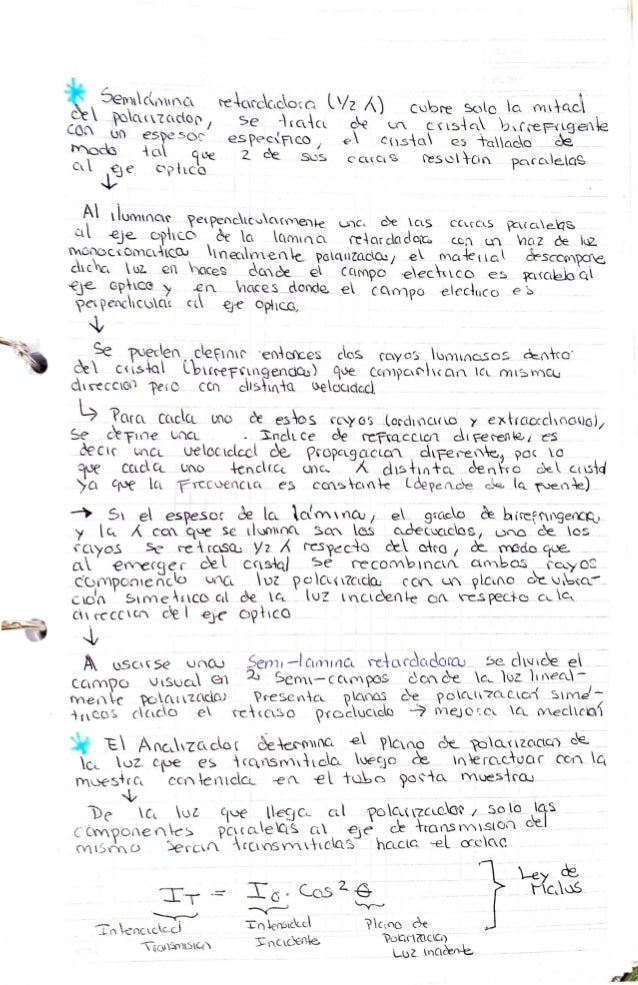 * Semilámina retardadora (1/2 λ) cubre solo la mitad
del polarizador, se trata de un cristal birrefrigente
con un espesor específico, el cristal es tallado de
modo tal que 2 de sus caras resultan paralelas
al eje optico
↓
Al iluminar perpendicularmente una de las caras paralelas
al eje optico de la lamina retardadora con un haz de luz
monocromatica linealmente polarizada, el material descompone
dicha luz en haces donde el campo electrico es paralelo al
eje optico y en haces donde el campo electrico es
perpendicular al eje optico,
↓
Se pueden definir entonces dos rayos luminosos dentro
del cristal (birrefringencia) que compartiran la misma
direccion pero con distinta velocidad
↳ Para cada uno de estos rayos (ordinario y extraordinario),
se define una . Indice de refraccion diferente, es
decir una velocidad de propagacion diferente, por lo
que cada uno tendra una λ distinta dentro del cristal
ya que la frecuencia es constante (depende de la fuente)
→ Si el espesor de la lámina, el grado de birefringencia
y la λ con que se ilumina son los adecuados, uno de los
rayos se retrasa 1/2 λ respecto del otro, de modo que
al emerger del cristal se recombinan ambos rayos
componiendo una luz polarizada con un plano de vibra-
ción simetrico al de la luz incidente con respecto a la
direccion del eje optico
↓
Al usarse una Semi-lamina retardadora se divide el
campo visual en 2 semi-campos donde la luz lineal-
mente polarizada presenta planos de polarizacion simé-
tricos dado el retraso producido → mejora la medicion
* El Analizador determina el plano de polarizacion de
la luz que es transmitida luego de interactuar con la
muestra contenida en el tubo porta muestra
↓
De la luz que llega al polarizador, solo las
componentes paralelas al eje de transmision del
mismo seran transmitidas hacia el ocular
I_T = I_0 · Cos² θ } Ley de Malus
Intencidad Transmisión
Intensidad Incidente
Plano de Polarización Luz incidente